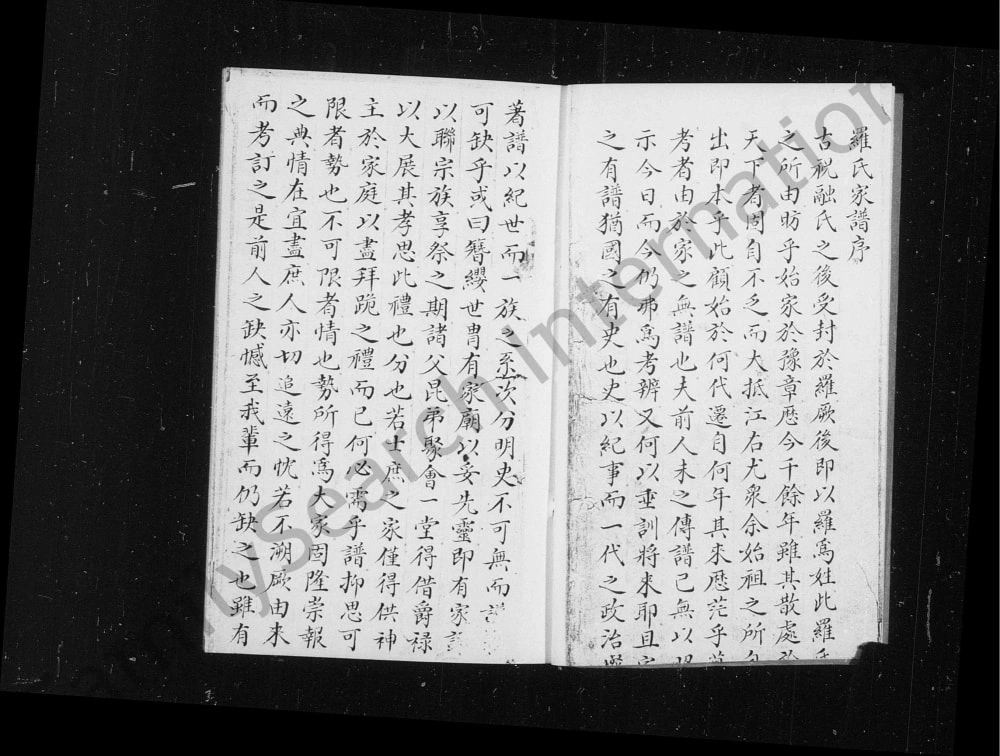 羅氏家譜序
古祝融氏之後受封於羅厥後即以羅爲姓此羅氏
之所由昉乎始家於豫章歷今千餘年雖其散處於
天下者固自不乏而大抵江右尤衆余始祖之所自
出即本乎此顧始於何代遷自何年其來歷茫乎莫
考者由於家之無譜也夫前人未之傳譜已無以昭
示今日而今仍弗爲考辨又何以垂訓將來耶且家
之有譜猶國之有史也史以紀事而一代之政治
著譜以紀世而一族之系次分明史不可無而譜
可缺乎或曰簪纓世胄有家廟以妥先靈即有家譜
以聯宗族享祭之期諸父昆弟聚會一堂得借爵祿
以大展其孝思此禮也分也若士庶之家僅得供神
主於家庭以盡拜跪之禮而已何必需乎譜抑思可
限者勢也不可限者情也勢所得爲大家固隆崇報
之典情在宜盡庶人亦切追遠之忱若不溯厥由來
而考訂之是前人之缺憾至我輩而仍缺之也雖有
FamilySearch International